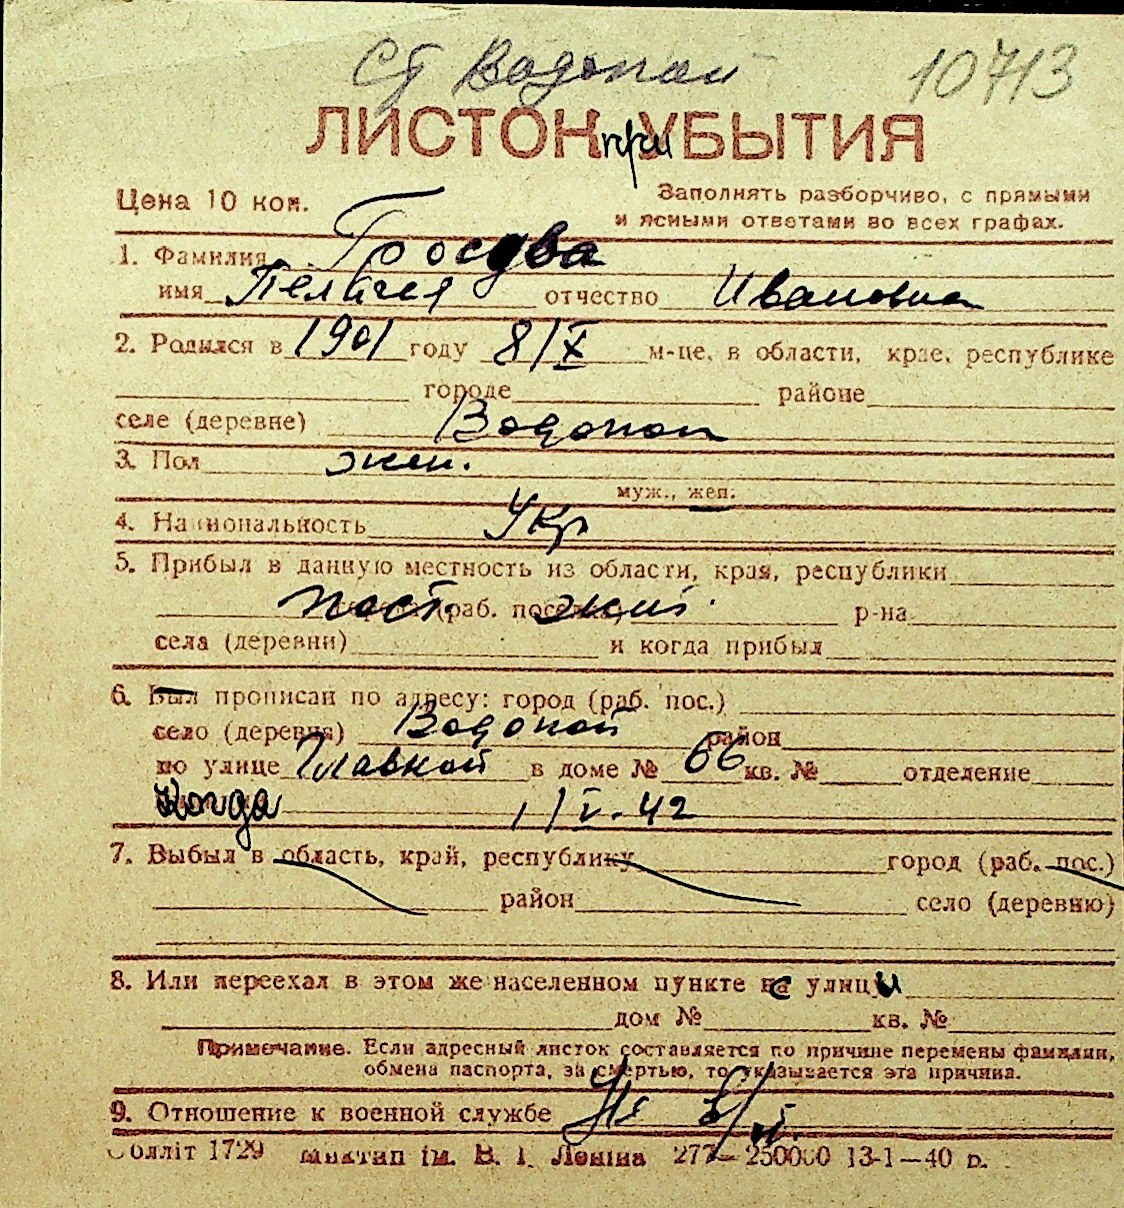 Ст Водопой 10713
ЛИСТОК при УБЫТИЯ
Цена 10 коп. Заполнять разборчиво, с прямыми
и ясными ответами во всех графах.
1. Фамилия
имя Пелагея отчество Ивановна
2. Родился в 1901 году 8/X м-це, в области, крае, республике
городе районе
селе (деревне) Водопой
3. Пол жен.
муж., жен.
4. Национальность Укр
5. Прибыл в данную местность из области, края, республики
пост. (раб. поселка) жит. р-на
села (деревни) и когда прибыл
6. Был прописан по адресу: город (раб. пос.)
село (деревня) Водопой район
по улице Главной в доме № 66 кв. № отделение
Когда 1/V-42
7. Выбыл в область, край, республику город (раб. пос.)
район село (деревню)
8. Или переехал в этом же населенном пункте с улицы
дом № кв. №
Примечание. Если адресный листок составляется по причине перемены фамилии,
обмена паспорта, за смертью, то указывается эта причина.
9. Отношение к военной службе Не в/
Обллiт 1729 iм. В. I. Ленiна 277—250000 13-1—40 р.